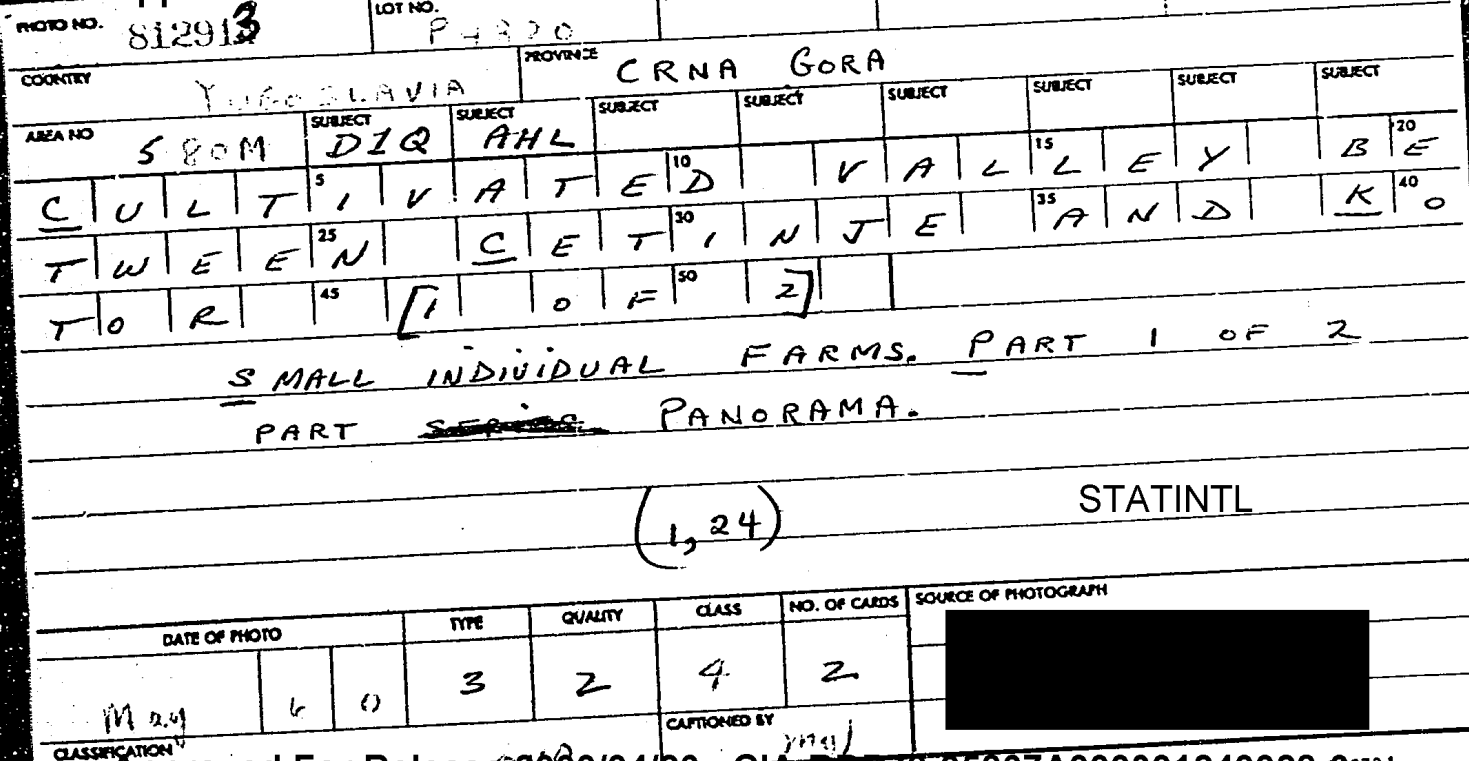 PHOTO NO. 812913 LOT NO. P-4320
COUNTRY YUGOSLAVIA PROVINCE CRNA GORA
AREA NO 580M SUBJECT D1Q SUBJECT AHL SUBJECT SUBJECT SUBJECT SUBJECT SUBJECT SUBJECT
CULTIVATED VALLEY BE
5 10 15 20
TWEEN CETINJE AND KO
25 30 35 40
TOR [1 OF 2]
45 50
SMALL INDIVIDUAL FARMS. PART 1 OF 2
PART PANORAMA.
STATINTL
(1,24)
DATE OF PHOTO TYPE QUALITY CLASS NO. OF CARDS SOURCE OF PHOTOGRAPH
May 60 3 2 4 2
CLASSIFICATION CAPTIONED BY